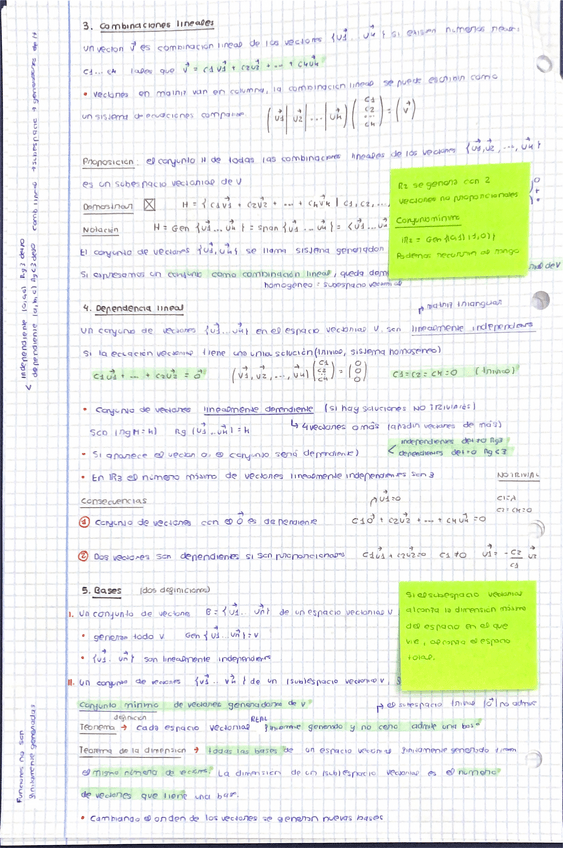 3. Combinaciones lineales
Un vector v⃗ es combinación lineal de los vectores {u⃗1 ... u⃗k} si existen números
c1... ck tales que v⃗ = c1u⃗1 + c2u⃗2 + ... + cku⃗k
• vectores en matriz van en columna, la combinación lineal se puede escribir como
un sistema de ecuaciones (u⃗1 | u⃗2 | ... | u⃗k) (c1 c2 ... ck) = (v⃗)
Proposición: el conjunto H de todas las combinaciones lineales de los vectores {u⃗1, u⃗2, ..., u⃗k}
es un subespacio vectorial de V
Demostrar H = {c1u⃗1 + c2u⃗2 + ... + cku⃗k | c1, c2, ...
Notación H = Gen {u⃗1 ... u⃗k} = span {u⃗1 ... u⃗k} = <u⃗1 ...
El conjunto de vectores {u⃗1, u⃗k} se llama sistema generador
Si expresamos un conjunto como combinación lineal, queda
homogéneo / subespacio vectorial
R2 se genera con 2
vectores no proporcionales
Conjunto mínimo
R2 = Gen {(0,1) (1,0)}
Podemos recurrir al rango
4. Dependencia lineal
matriz triangular
Un conjunto de vectores {u⃗1 ... u⃗k} en el espacio vectorial V, son linealmente independientes
si la ecuación vectorial tiene una única solución (trivial, sistema homogéneo)
c1u⃗1 + ... + cku⃗k = 0⃗ (u⃗1, u⃗2, ..., u⃗k) (c1 c2 ck) = (0 0 0) c1=c2=ck=0 (trivial)
• Conjunto de vectores linealmente dependiente (si hay soluciones NO TRIVIALES)
SCD (rg M=k) Rg (u⃗1 ... u⃗k) = k ↳ 4 vectores o más (añadir vectores de más)
• Si aparece el vector 0, el conjunto será dependiente) < independientes det≠0 Rg3
dependientes det=0 Rg<3
• En R3 el número máximo de vectores linealmente independientes son 3
NO TRIVIAL
Consecuencias
u⃗1=0
① Conjunto de vectores con el 0⃗ es dependiente c10⃗ + c2u⃗2 + ... + cku⃗k = 0
c2=ck=0
② Dos vectores son dependientes si son proporcionales c1u⃗1 + c2u⃗2=0 c1≠0 u⃗1 = -c2/c1 u⃗2
5. Bases (dos definiciones)
I. Un conjunto de vectores B = {u⃗1 ... u⃗n} de un espacio vectorial V
• generan todo V Gen {u⃗1 ... u⃗n} = V
• {u⃗1 ... u⃗n} son linealmente independientes
II. Un conjunto de vectores {u⃗1 ... u⃗n} de un (sub)espacio vectorial V,
Conjunto mínimo de vectores generadores de V
el subespacio trivial {0⃗} no admite
definición REAL
Teorema → cada espacio vectorial finitamente generado y no cero admite una base
Teorema de la dimensión → todas las bases de un espacio vectorial finitamente generado tienen
el mismo número de vectores. La dimensión de un (sub)espacio vectorial es el número
de vectores que tiene una base.
• Cambiando el orden de los vectores se generan nuevas bases
Si el subespacio vectorial
alcanza la dimensión máxima
del espacio en el que
vive, abarca el espacio
total.
Funciones no son
finitamente generadas